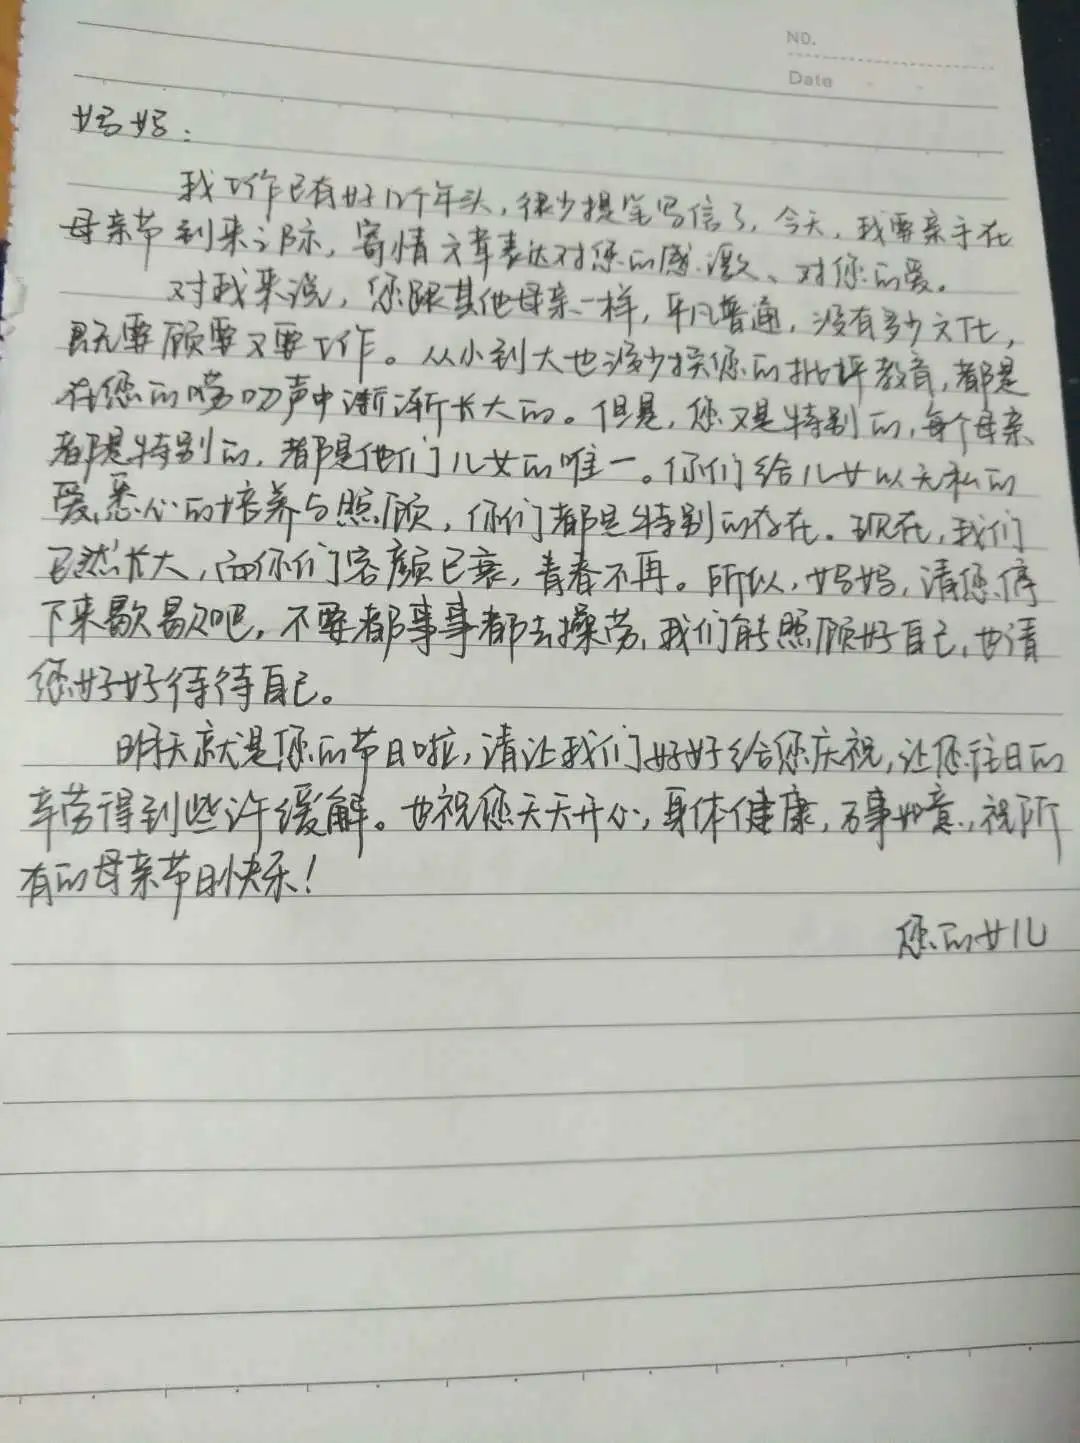 NO.
Date
妈妈：
我工作已有好几个年头，很少提笔写信了，今天，我要亲手在
母亲节到来之际，寄情文章表达对您的感激、对您的爱。
对我来说，您跟其他母亲一样，平凡普通，没有多少文化，
既要顾要又要工作。从小到大也没少挨您的批评教育，都是
在您的唠叨声中渐渐长大的。但是，您又是特别的，每个母亲
都是特别的，都是他们儿女的唯一。你们给儿女以无私的
爱，悉心的培养与照顾，你们都是特别的存在。现在，我们
已然长大，而你们容颜已衰，青春不再。所以，妈妈，请您停
下来歇歇吧，不要都事事都去操劳，我们能照顾好自己，也请
您好好待待自己。
明天就是您的节日啦，请让我们好好给您庆祝，让您往日的
辛劳得到些许缓解。也祝您天天开心，身体健康，万事如意，祝所
有的母亲节日快乐！
您的女儿